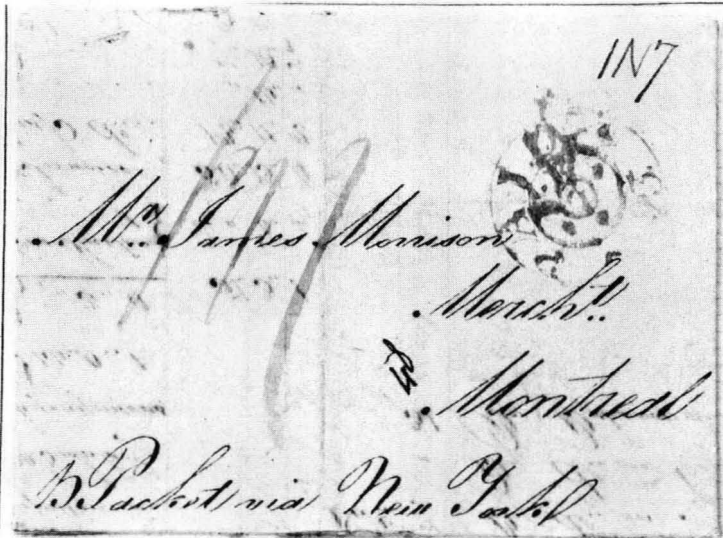 1N7
Mr. James Morrison
Mercht.
Montreal
Packet via New York